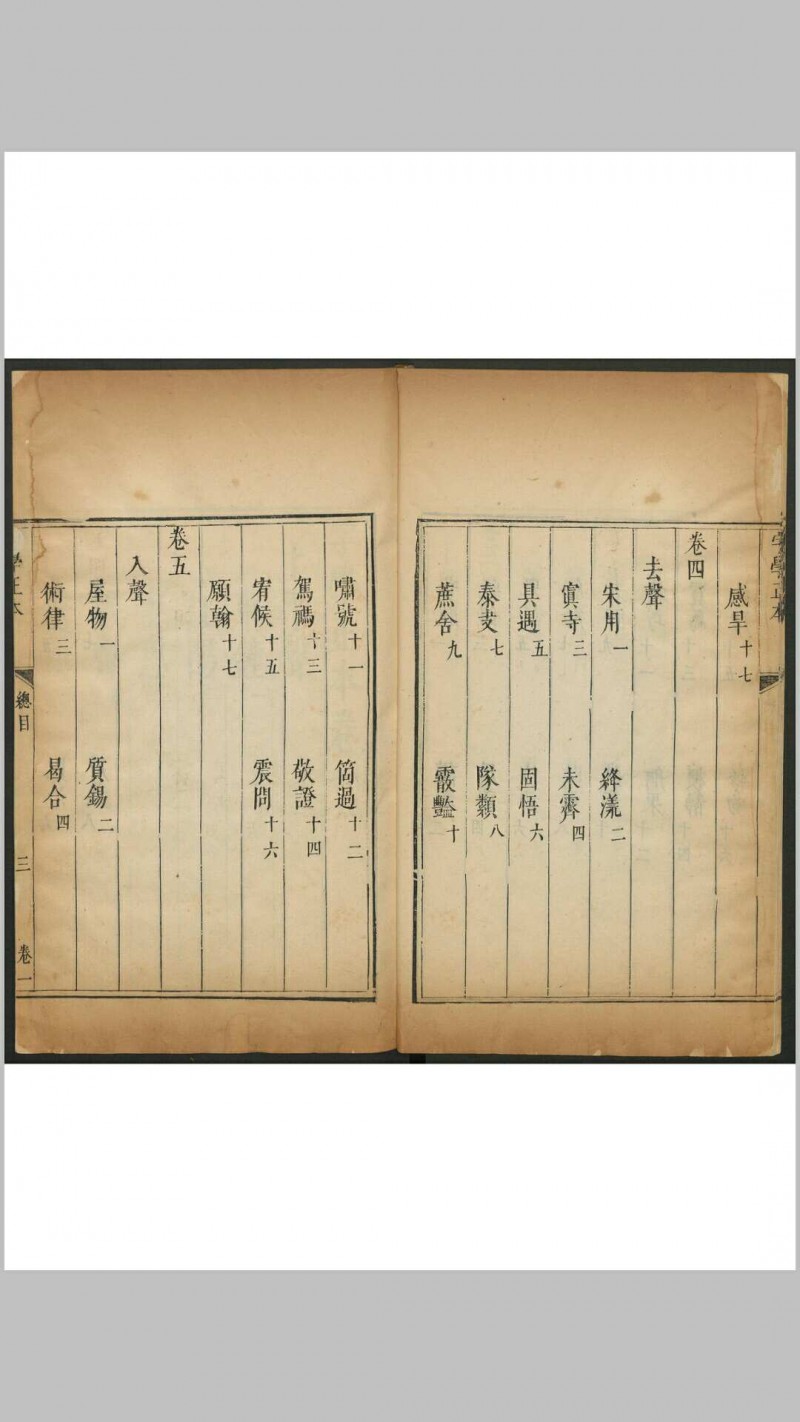 感旱十七
卷四
去聲
宋用一　絳漾二
寘寺三　未霽四
具遇五　固悟六
泰叏七　隊纇八
蔗舍九　霰豔十
嘯號十一　箇過十二
駕禡十三　敬證十四
宥候十五　震問十六
願翰十七
卷五
入聲
屋物一　質錫二
術律三　曷合四
學正本
總目
三
卷一